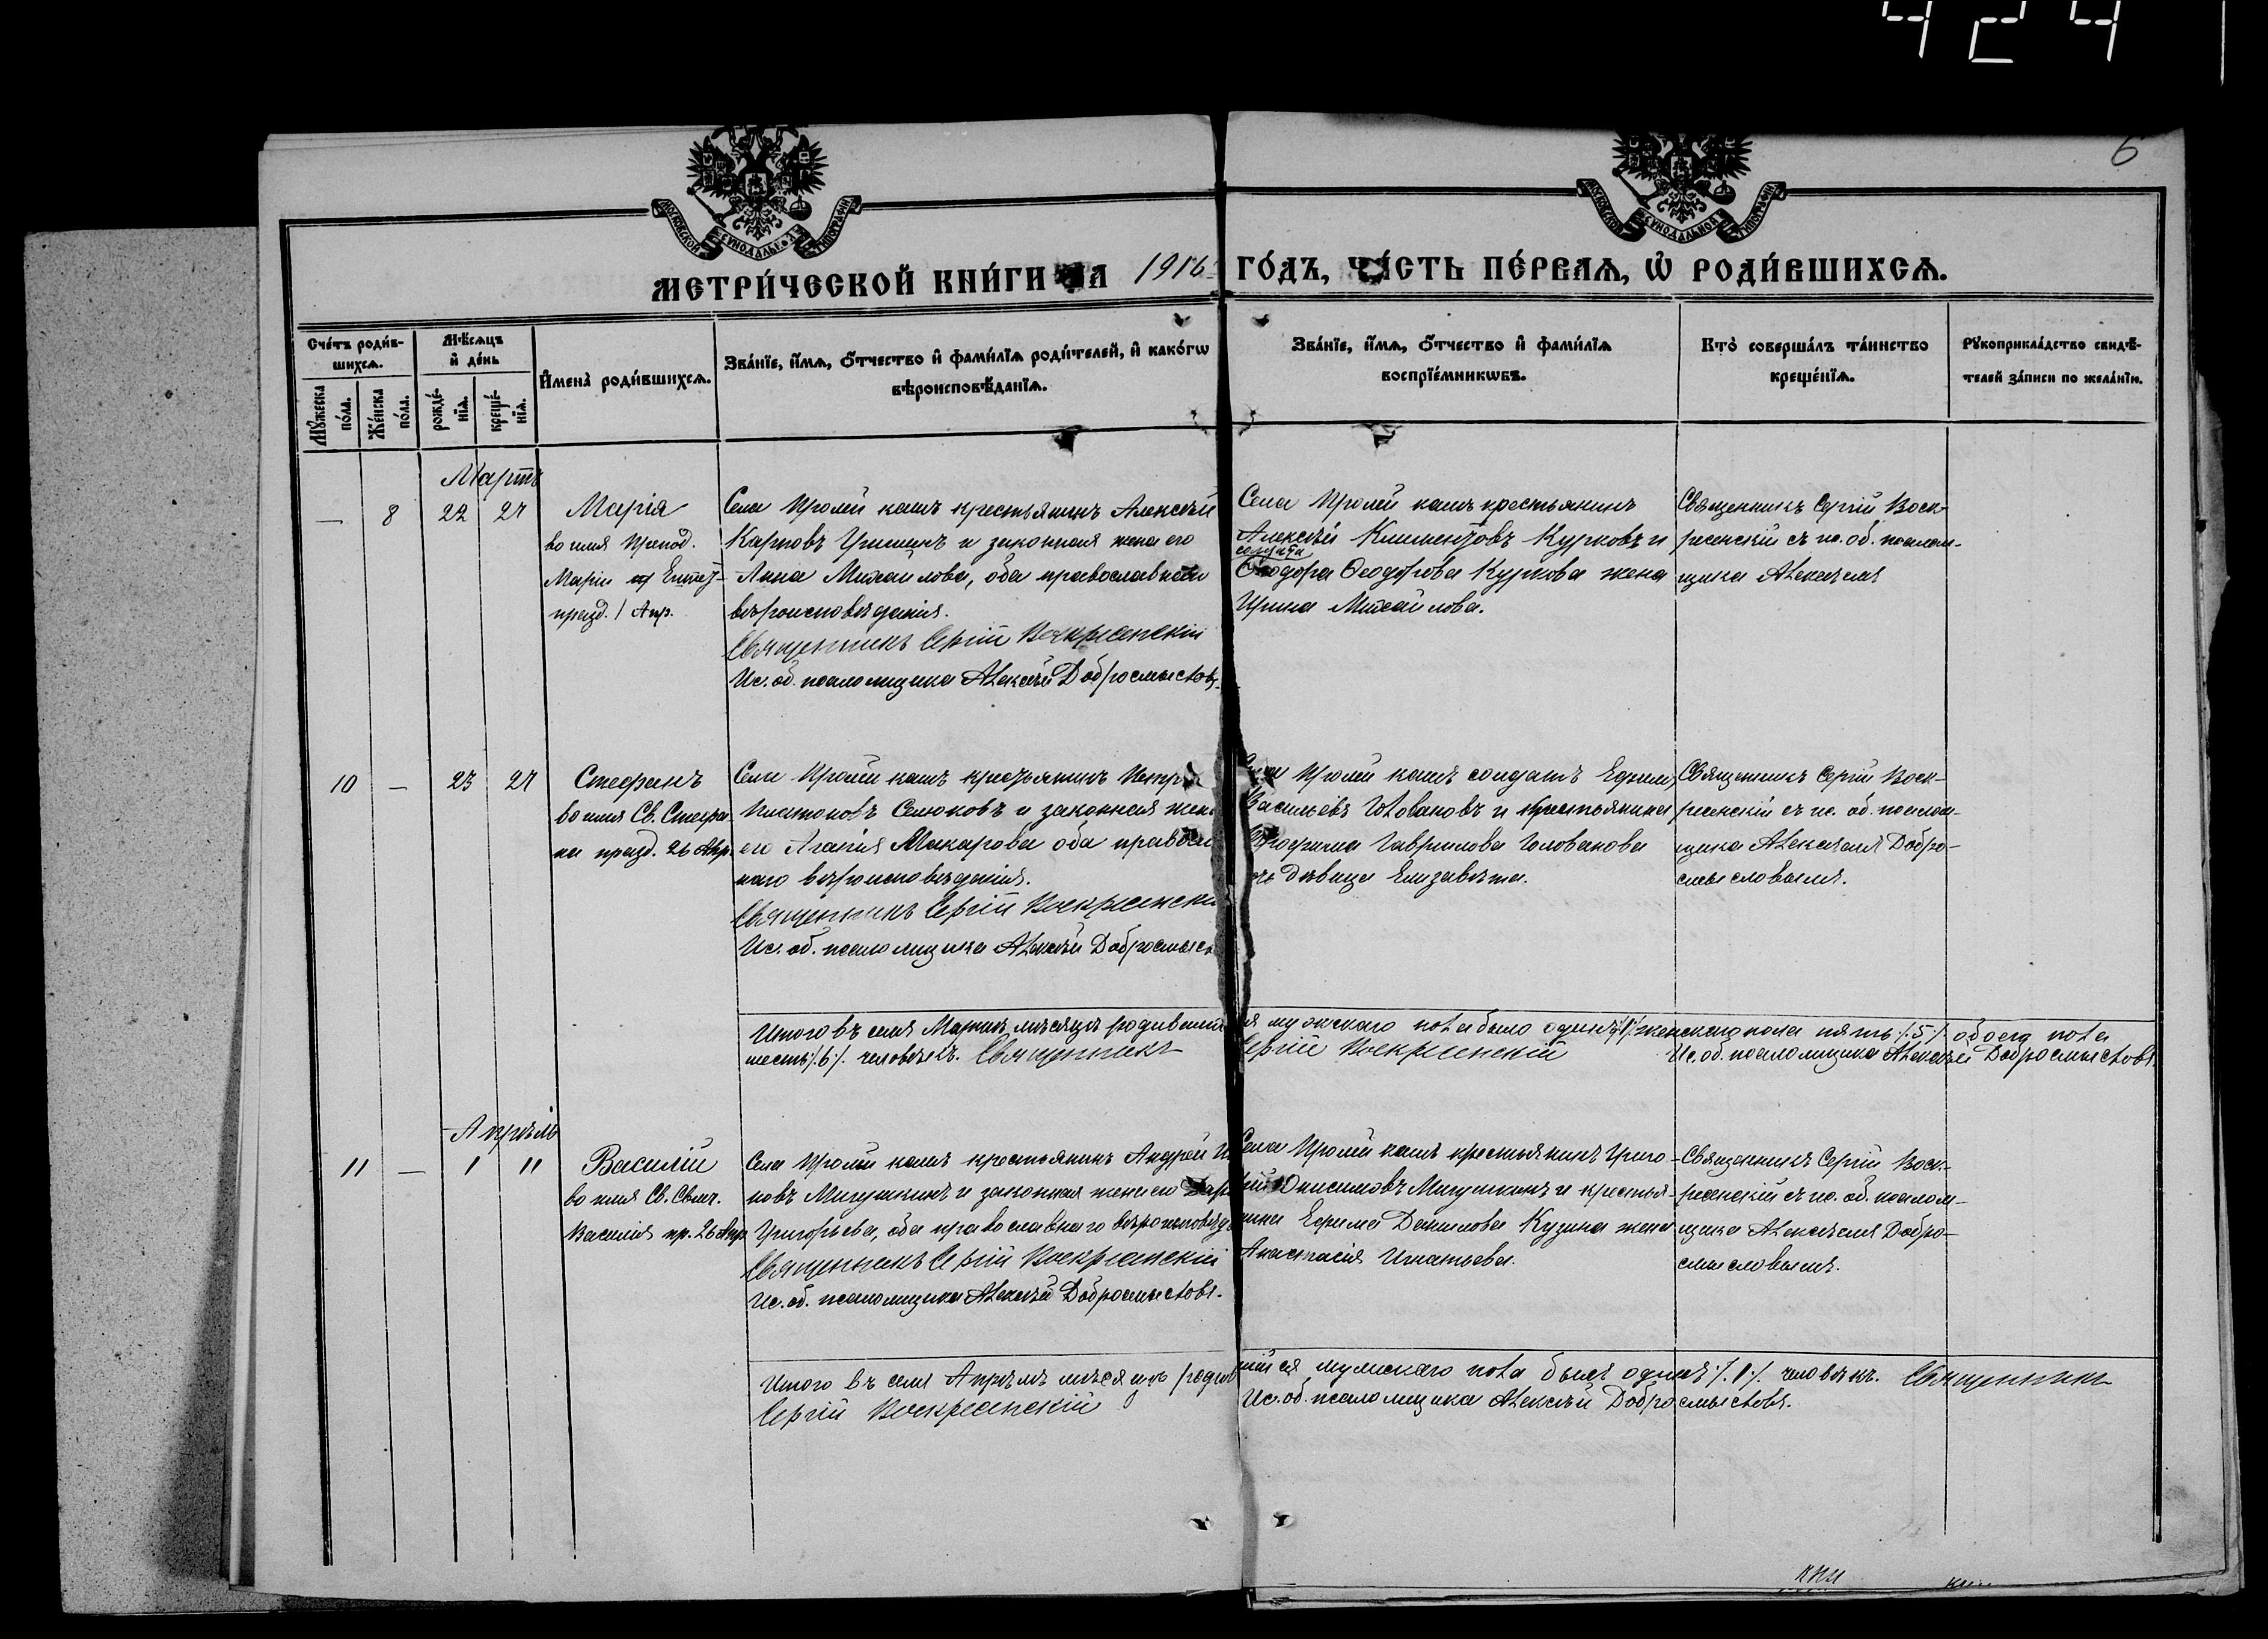 424
6
МОСКОВСКОЙ СѴНОДАЛЬНОЙ ТИПОГРАФІИ
МОСКОВСКОЙ СѴНОДАЛЬНОЙ ТИПОГРАФІИ
МЕТРИ́ЧЕСКОЙ КНИ́ГИ НА 1916 ГО́ДЪ, ЧА́СТЬ ПЕ́РВАѦ, Ѡ РОДИ́ВШИХСѦ.
Сче́тъ роди́в-
шихсѧ.
Мꙋ́жеска по́ла.
Же́нска по́ла.
Мѣ́сѧцъ
и҆ де́нь
рожде́-нїѧ.
креще́-нїѧ.
И҆мена̀ роди́вшихсѧ.
Зва́нїе, и҆́мѧ, ѻ҆́тчество и҆ фами́лїѧ роди́телей, и҆ како́гѡ
вѣроисповѣ́данїѧ.
Зва́нїе, и҆́мѧ, ѻ҆́тчество и҆ фами́лїѧ
воспрїе́мникѡвъ.
Кто̀ соверша́лъ та́инство
креще́нїѧ.
Рꙋкоприкла́дство свидѣ́-
телей за́писи по жела́нїю.
Мартъ
— 8 22 27
Марія
во имя Препод.
Маріи Египет-
празд. 1 Апр.
Села крестьянинъ Алексѣй
Карповъ и законная жена его
Анна Михаилова, оба православнаго
вѣроисповѣданія.
Священникъ Сергій Воскресенскій
Ис. об. псаломщика Алексѣй Добросмысловъ.
Села крестьянинъ
Алексѣй Климентовъ Курковъ и
солдата
Ѳеодора Ѳеодорова Куркова жена
Ирина Михаилова.
Священникъ Сергій Воск-
ресенскій съ ис. об. псалом-
щика Алексѣемъ
10 — 23 27
Стефанъ
во имя Св. Стефа-
на празд. 26 Апр.
Села крестьянинъ Петръ
Платоновъ Семоковъ и законная жена
его Агапія Макарова оба правосл
наго вѣроисповѣданія.
Священникъ Сергій Воскресенскі
Ис. об. псаломщика Алексѣй Добросмысл
солдатъ Ефимъ
Васильевъ Головановъ и крестьянина
Трофима Гаврилова Голованова
дочь дѣвица Елизавета.
Священникъ Сергій Воск-
ресенскій съ ис. об. псалом-
щика Алексѣемъ Добро-
смысловымъ.
Итого въ семъ Мартѣ мѣсяцѣ родившихся мужскаго пола было одинъ /.1./. женскаго пола пять /.5./. обоего пола
шесть /.6./. человѣкъ. Священникъ Сергій Воскресенскій Ис. об. псаломщика Алексѣй Добросмысловъ.
Апрѣль
11 — 1 11
Василій
во имя Св. Свмч.
Василія пр. 26 Апр.
Села крестьянинъ Андрей
новъ Мигушкинъ и законная жена его Дар
Григорьева, оба православнаго вѣроисповѣд
Священникъ Сергій Воскресенскій
Ис. об. псаломщика Алексѣй Добросмысловъ.
Села крестьянинъ Григо-
рій Онисимовъ Мигушкинъ и крестья-
нина Ефима Данилова Кузина жена
Анастасія Игнатьева.
Священникъ Сергій Воск-
ресенскій съ ис. об. псалом-
щика Алексѣемъ Добро-
смысловымъ.
Итого въ семъ Апрѣлѣ мѣсяцѣ родившійся мужскаго пола былъ одинъ /.1./. человѣкъ. Священникъ
Сергій Воскресенскій Ис. об. псаломщика Алексѣй Добросмысловъ.